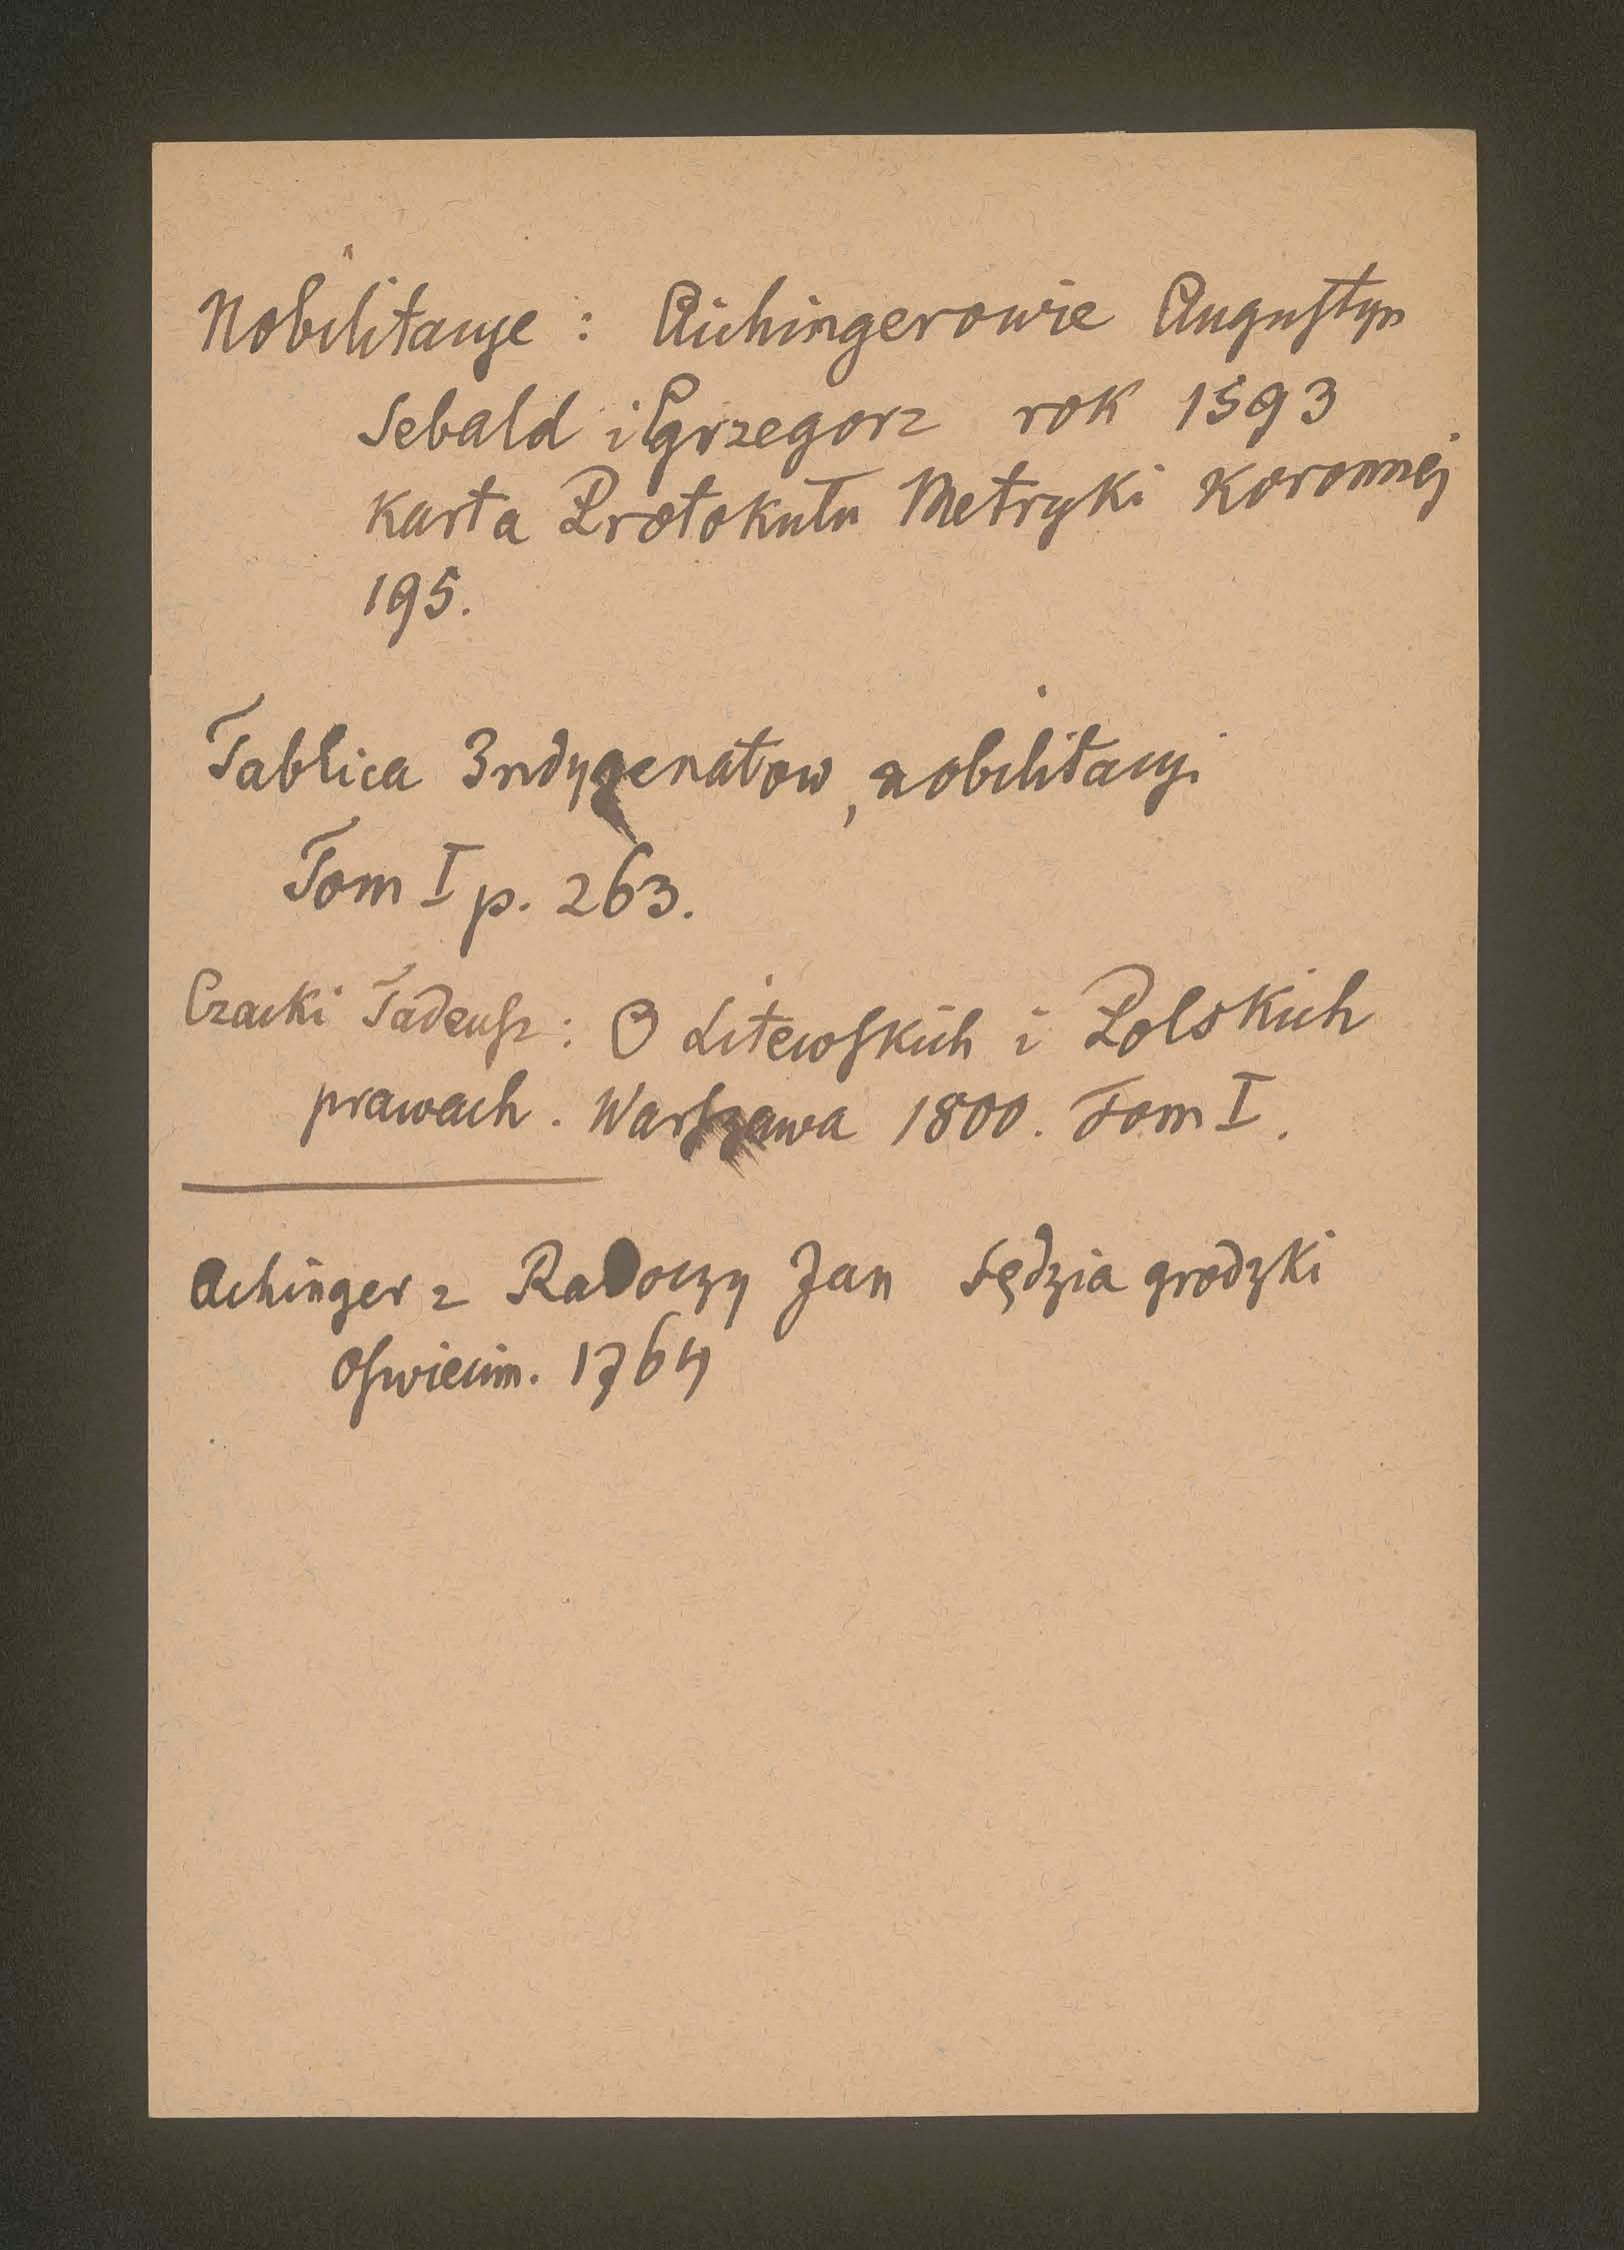 Nobilitacyje : Aichingerowie Augustyn
Sebald i Grzegorz rok 1593
karta Protokułu Metryki Koronnej
195.
Tablica Indygenatow, nobilitacyi
Tom I p. 263.
Czacki Tadeusz : O Litewskich i Polskich
prawach. Warszawa 1800. Tom I.
Achinger z Radoczy Jan Sędzia grodzki
Oswiecim. 1764